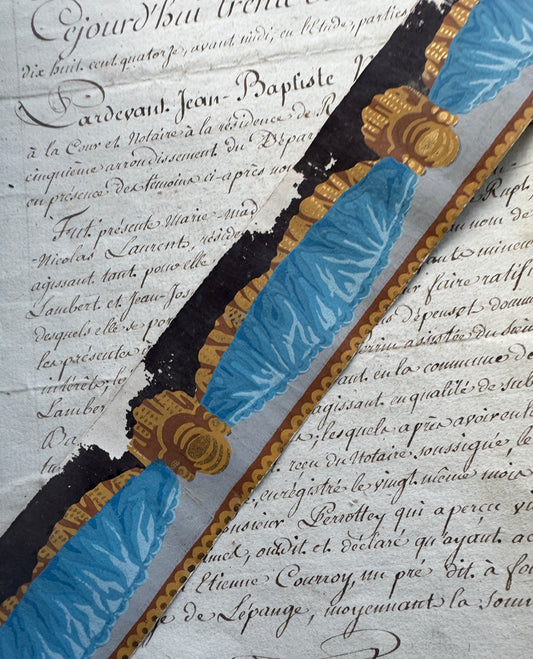 Cejourd'hui trente
dix huit cent quatorze, avant midi, en l'Etude, parties
Pardevant Jean-Baptiste
à la Cour et Notaire à la résidence de R
cinquième arrondissement du Dépar
en présence des témoins ci-après nom
Fut présente Marie-mad
-Nicolas Laurent, réside
agissant tant pour elle
Lambert et Jean-Jos
desquels elle se po
les présentes
intérêts; le
Lamber
Ba
Rupt,
nom de
te mineu
faire ratifi
dépens et domm
assistée du
ant en la commune de
agissant en qualité de sub
s, lesquels après avoir ent
reçu du Notaire soussigné, le
, enregistré le vingt même mois
onsieur Perrottey qui a perçu
ont dit et déclaré qu'ayant
Etienne Courroy, un pré dit à
de Lépange, moyennant la som